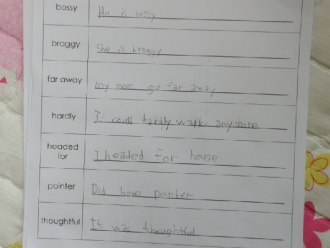 bossy He is bossy
braggy She is braggy
far away my mom go far away
hardly I could hardly walk anymore
headed for I headed for house
pointer Dad have pointer
thoughtful It was thoughtful